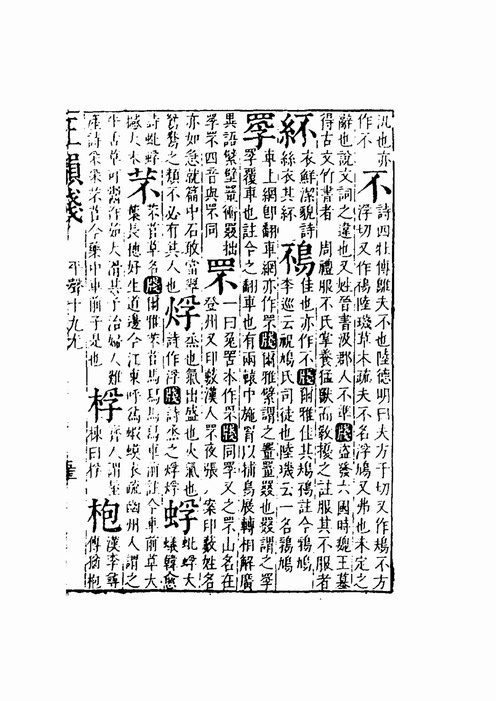 汎也亦
作不
不
詩四牡傅鵻夫不也陸德明曰夫方于切又作鳺不方
浮切又作鴀陸璣草木疏夫不名浮鳩又弗也未定之
辭也說文詞之違也又姓晉書汲郡人不準牋盜發六國時魏王墓
得古文竹書者 周禮服不氏掌養猛獸而教擾之註服其不服者
紑
衣鮮潔貌詩
絲衣其紑
鴀
隹也亦作不牋爾雅隹其鳺鴀註今鵓鳩
李巡云祝鳩氏司徒也陸璣云一名鵓鳩
罦
車上網即翻車網亦作罘牋爾雅繴謂之罿罿罬也罬謂之罦
罦覆車也註今之翻車也有兩轅中施罥以捕鳥展轉相解廣
異語繴罿罬拙
罦罘四音與罘同
罘
一曰兔罟本作罘牋同罦又之罘山名在
登州又印數漢人罘夜張 案印數姓名
亦如急就篇中石敢當翠
鴛鴦之類不必有其人也
烰
烝也氣出盛也火氣也
詩作浮牋詩烝之烰烰
蜉
蚍蜉大
蟻韓愈
詩蚍蜉
撼大木
芣
芣苢草名牋爾雅芣苢馬舄馬舄車前註今車前草大
葉長穗好生道邊今江東呼蝦蟆衣疏幽州人謂之
牛舌草可鬻作茹大滑其子治婦人難
產詩采采芣苢今藥中車前子是也
桴
齊人謂屋
棟曰桴
枹
漢李尋
傳捊枹
正韻牋 平聲十九尤